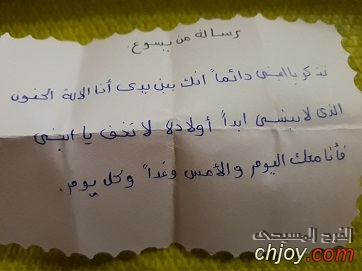 رسالة من يسوع.
تذكر يا ابنى دائماً انك بين يدى أنا الاله الحنون
الذى لا ينسى ابداً أولاده لا تخف يا ابنى
فأنا معك اليوم والأمس وغداً وكل يوم.
الفرح المسيحى
chjoy.com